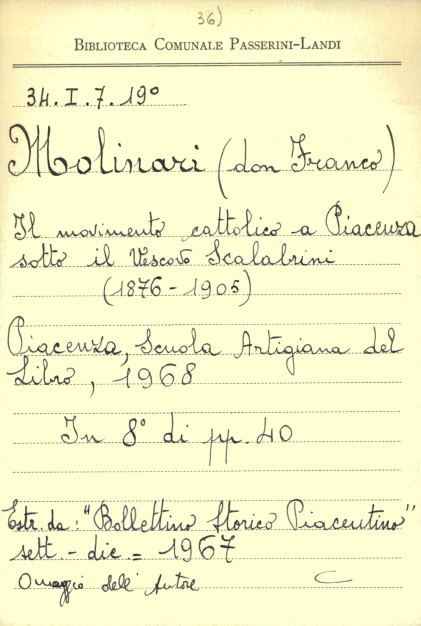 36)
BIBLIOTECA COMUNALE PASSERINI-LANDI
34.I.7.19°
Molinari (don Franco)
Il movimento cattolico a Piacenza
sotto il Vescovo Scalabrini
(1876-1905)
Piacenza, Scuola Artigiana del
Libro, 1968
In 8° di pp. 40
Estr. da: "Bollettino Storico Piacentino"
sett. - dic. = 1967
Omaggio dell' Autore C